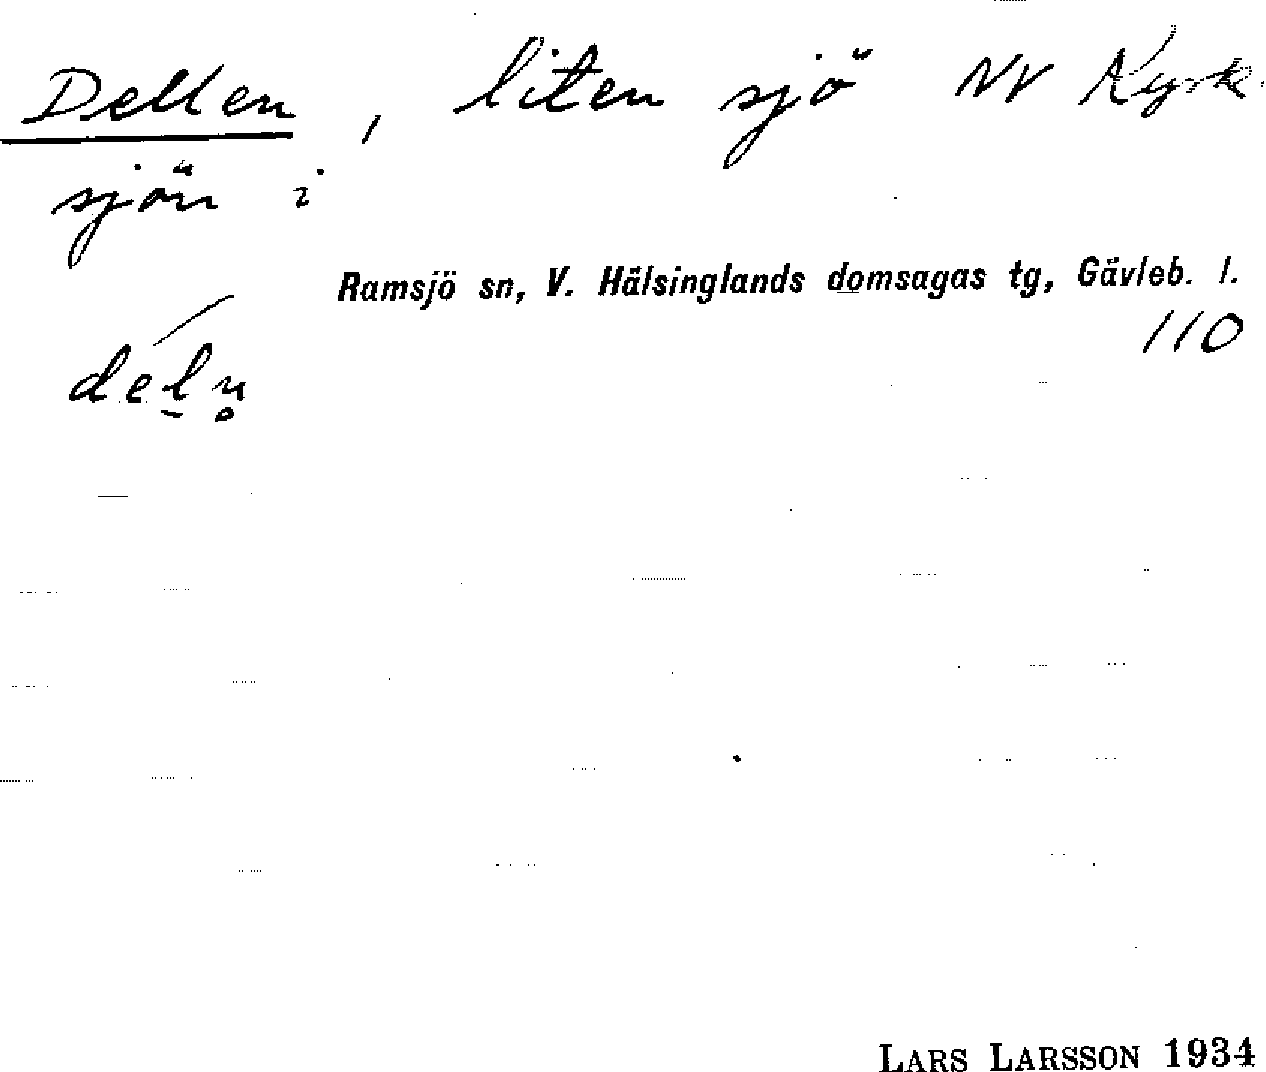 Dellen, liten sjö NV Kyrk-
sjön i
Ramsjö sn, V. Hälsinglands domsagas tg, Gävleb. l.
110
déḻn̥
LARS LARSSON 1934